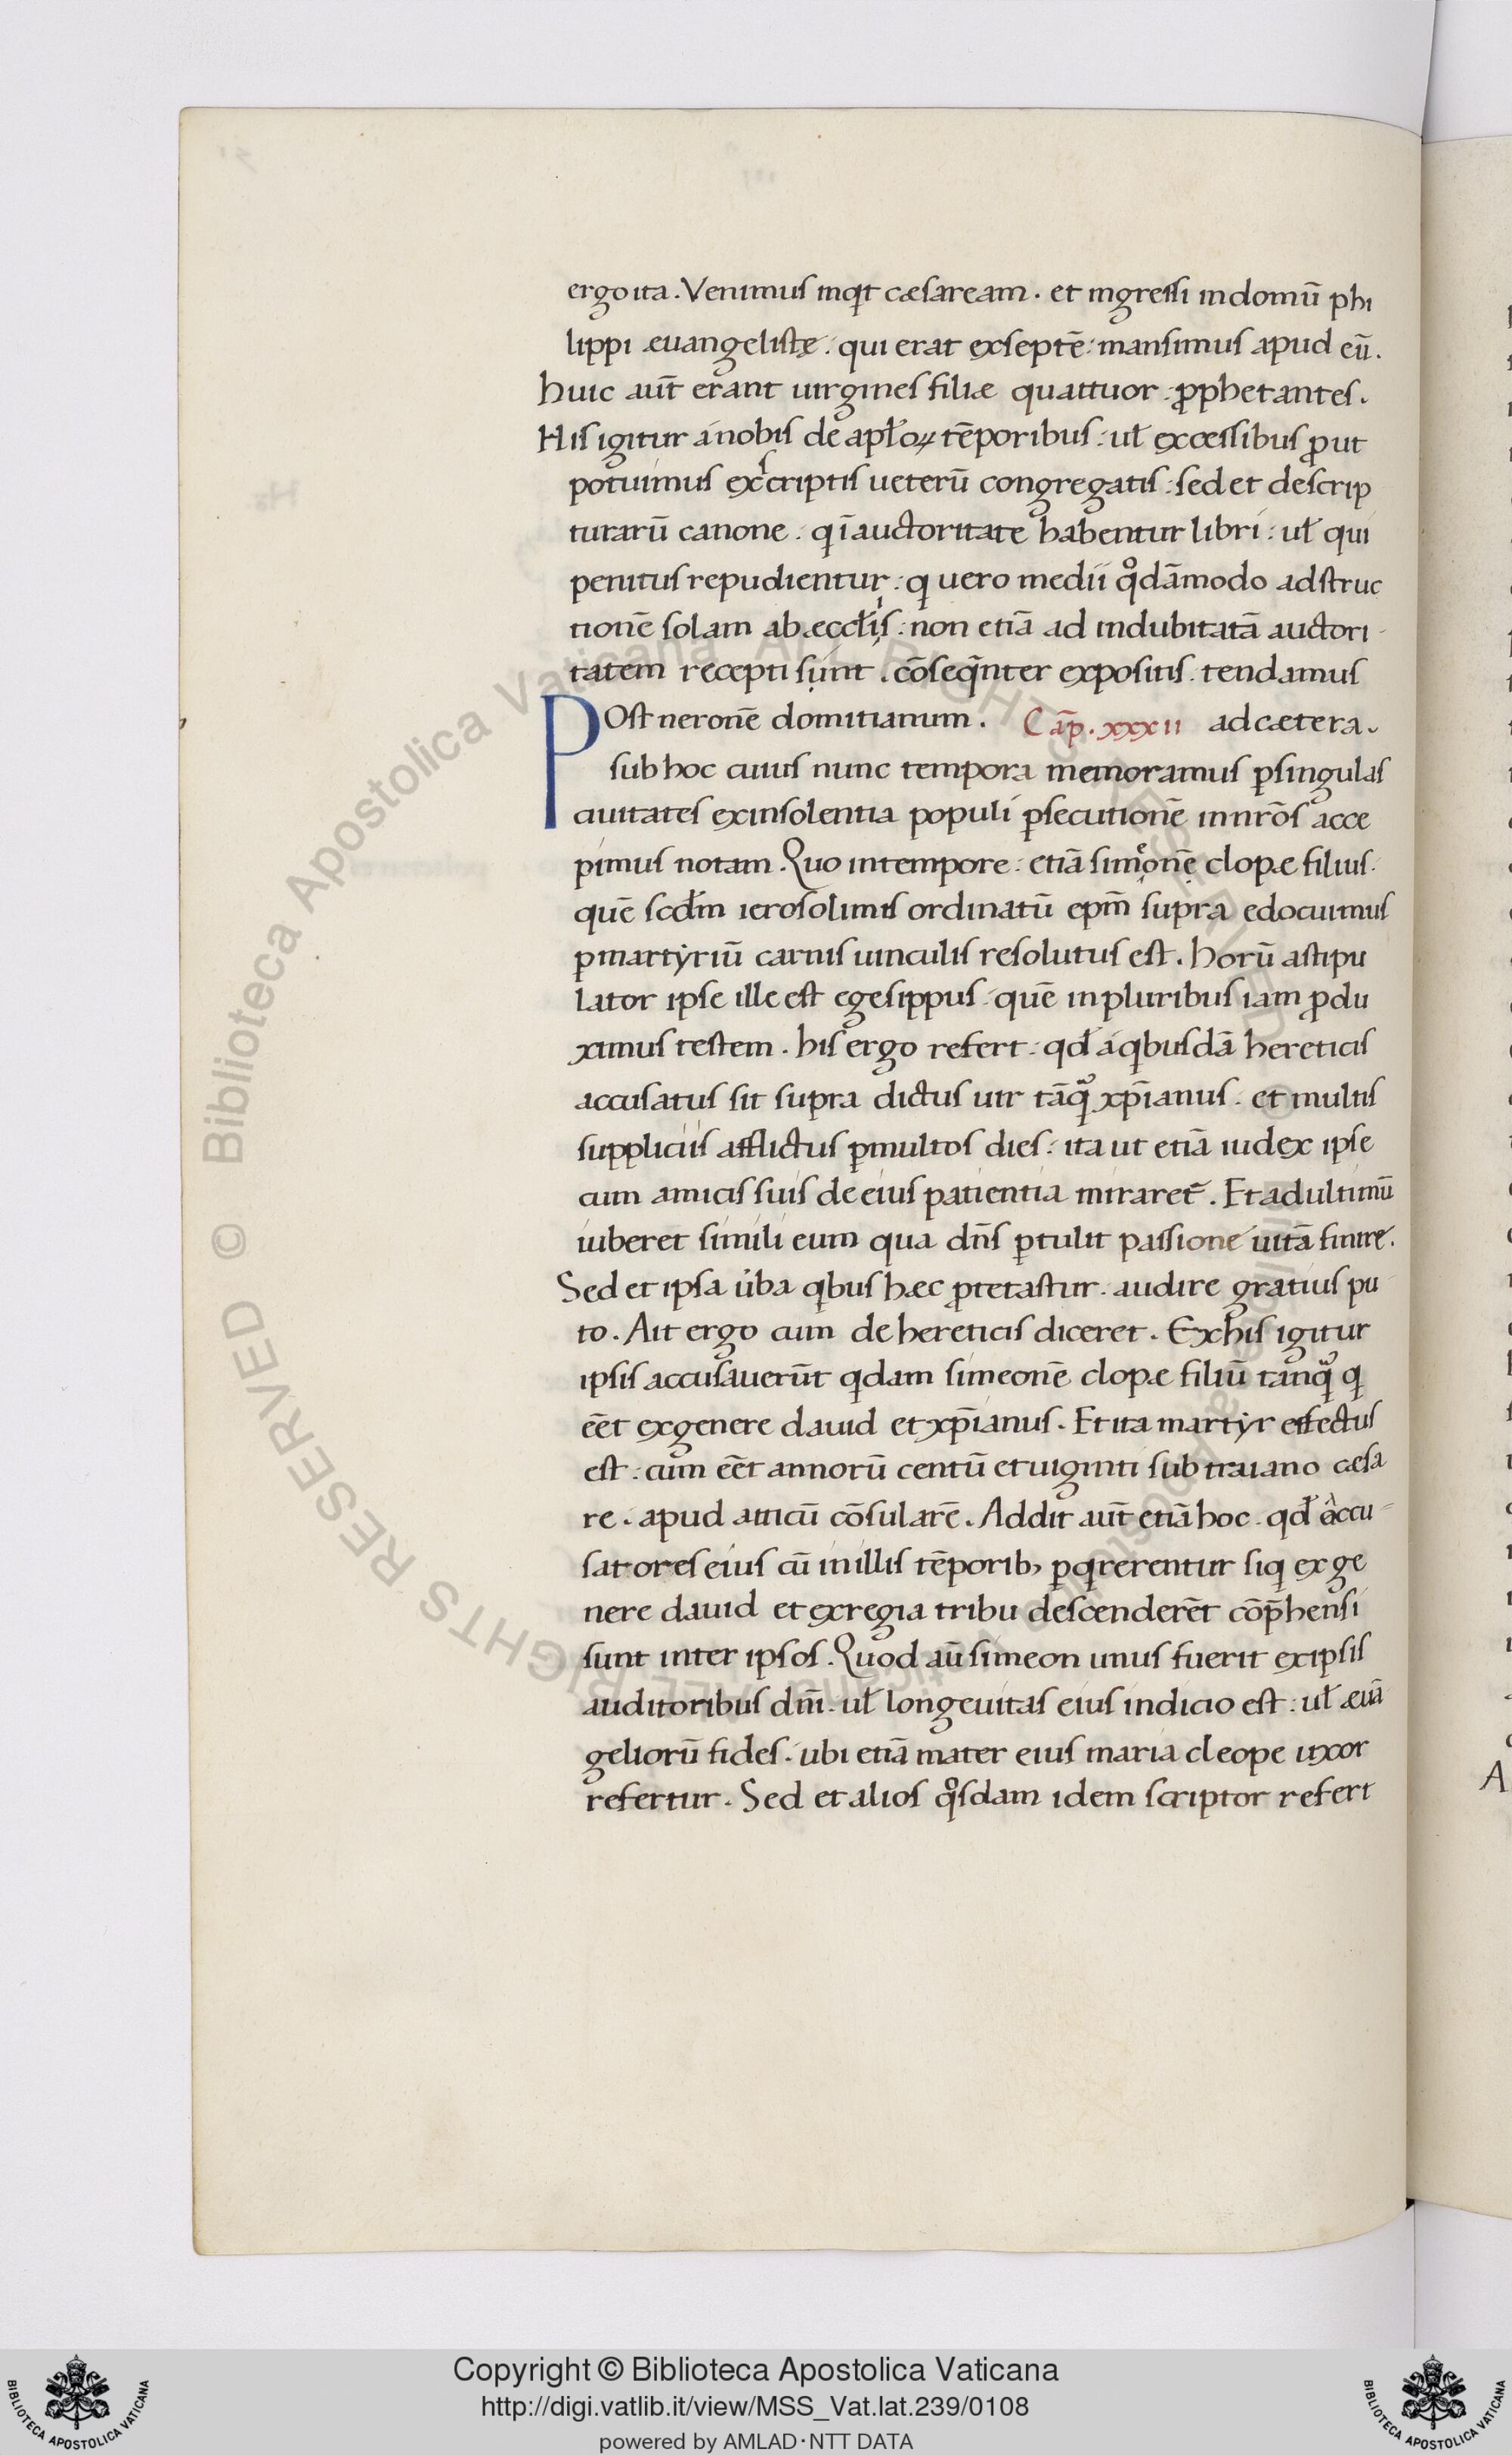 ergo ita. Venimus inqt cæsaream. et ingressi in domū phi
lippi æuangelistę. qui erat ex septē: mansimus apud eū.
huic aut̄ erant uirgines filiæ quattuor: ꝓphetantes.
His igitur á nobis de apłoꝝ tēporibus: uł excessibus ꝓut
potuimus ex scriptis ueterū congregatis: sed et descrip
turarū canone. q ī auctoritate habentur libri: uł qui
penitus repudientur: q uero medii qͦdāmodo adstruc
tionē solam ab æccłiis: non etiā ad indubitatā auctori
tatem recepti sunt. cōseqn̄ter expositis. tendamus
POst neronē domitianum. Cāp. xxxii ad cætera.
sub hoc cuius nunc tempora memoramus ꝑ singulas
ciuitates ex insolentia populi ꝑsecutionē in nr̄os acce
pimus notam. Quo in tempore: etiā simonē clopæ filius.
quē scdm̄ ierosolimis ordinatū epm̄ supra edocuimus
ꝑ martyriū carnis uinculis resolutus est. horū astipu
lator ipse ille est egesippus. quē in pluribus iam ꝓdu
ximus testem. his ergo refert. qđ á qbusdā hereticis
accusatus sit supra dictus uir tāqͣ xp̄ianus. et multis
suppliciis afflictus ꝑ multos dies: ita ut etiā iudex ipse
cum amicis suis de eius patientia miraret᷑. Et ad ultimū
iuberet simili eum qua dn̄s ꝑtulit passione uitā finire.
Sed et ipsa ūba qbus hæc ꝓtetastur. audire gratius pu
to. Ait ergo cum de hereticis diceret. Ex his igitur
ipsis accusauerūt qdam simeonē clopæ filiū tanqͣ q
eēt ex genere dauid et xp̄ianus. Et ita martyr effectus
est: cum eēt annorū centū et uiginti sub traiano cæsa
re. apud atticū cōsularē. Addit aut̄ etiā hoc. qđ accu-
satores eius cū in illis tēporib, ꝑqrerentur siq ex ge
nere dauid et ex regia tribu descenderēt cōp̄hensi
sunt inter ipsos. Quod aū simeon unus fuerit ex ipsis
auditoribus dn̄i. uł longeuitas eius indicio est: uł æuā
geliorū fides. ubi etiā mater eius maria cleope uxor
refertur. Sed et alios qͦsdam idem scriptor refert
A
© Biblioteca Apostolica Vaticana ALL RIGHTS RESERVED
Copyright © Biblioteca Apostolica Vaticana
http://digi.vatlib.it/view/MSS_Vat.lat.239/0108
powered by AMLAD·NTT DATA
BIBLIOTECA APOSTOLICA VATICANA
BIBLIOTECA APOSTOLICA VATICANA